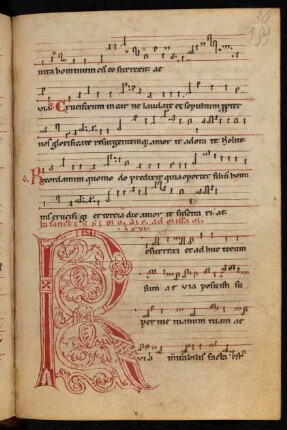 uita hominum es eo surrexit. ae
uia. Crucifixum in car ne laudate et sepultum ppter
uos glorificate resurgentemq; a morte adora te. Nolite
Recordamini quomo do predixit quia oportet filiū homi
nis crucifi gi et tercia die a morte suscita ri. ae
esurrexi et ad huc tecum
sum ae uia posuisti su
per me manum tuam ae
uia mirabilis facta est